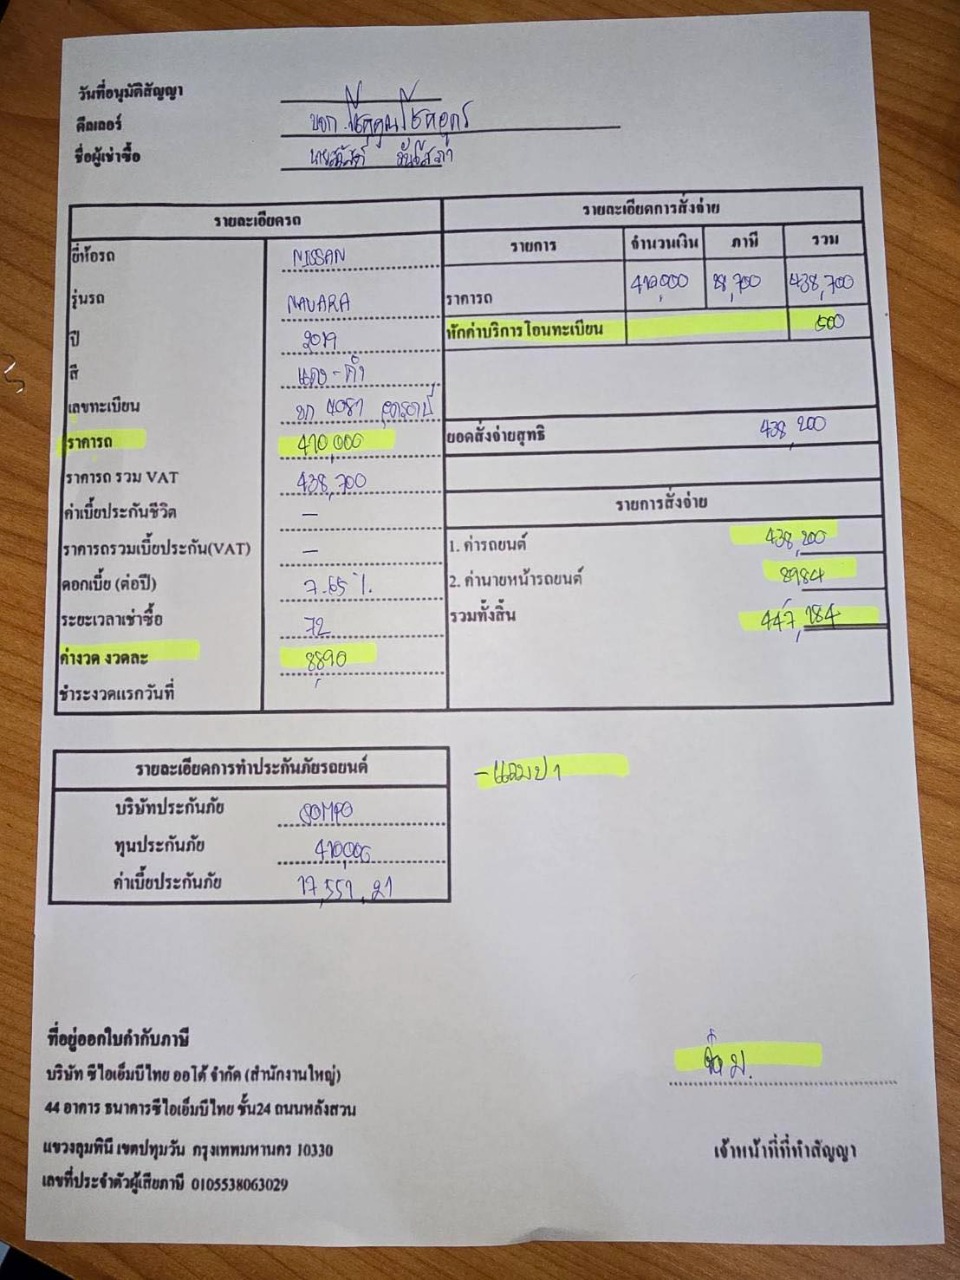 วันที่อนุมัติสัญญา
ดีลเลอร์ บจก.
ชื่อผู้เช่าซื้อ นาย
รายละเอียดรถ
ยี่ห้อรถ NISSAN
รุ่นรถ NAVARA
ปี 2019
สี แดง-ดำ
เลขทะเบียน 4081 อุดรธานี
ราคารถ 410,000
ราคารถ รวม VAT 438,700
ค่าเบี้ยประกันชีวิต –
ราคารถรวมเบี้ยประกัน(VAT) –
ดอกเบี้ย (ต่อปี) 7.65 %.
ระยะเวลาเช่าซื้อ 72
ค่างวด งวดละ 8,890
ชำระงวดแรกวันที่
รายละเอียดการสั่งจ่าย
รายการ จำนวนเงิน ภาษี รวม
ราคารถ 410,000 28,700 438,700
หักค่าบริการโอนทะเบียน 500
ยอดสั่งจ่ายสุทธิ 438,200
รายการสั่งจ่าย
1. ค่ารถยนต์ 438,200
2. ค่านายหน้ารถยนต์ 8984
รวมทั้งสิ้น 447,184
รายละเอียดการทำประกันภัยรถยนต์
บริษัทประกันภัย SOMPO
ทุนประกันภัย 410,000
ค่าเบี้ยประกันภัย 17,551.21
ที่อยู่ออกใบกำกับภาษี
บริษัท ซีไอเอ็มบีไทย ออโต้ จำกัด (สำนักงานใหญ่)
44 อาคาร ธนาคารซีไอเอ็มบีไทย ชั้น24 ถนนหลังสวน
แขวงลุมพินี เขตปทุมวัน กรุงเทพมหานคร 10330
เลขที่ประจำตัวผู้เสียภาษี 0105538063029
เจ้าหน้าที่ที่ทำสัญญา